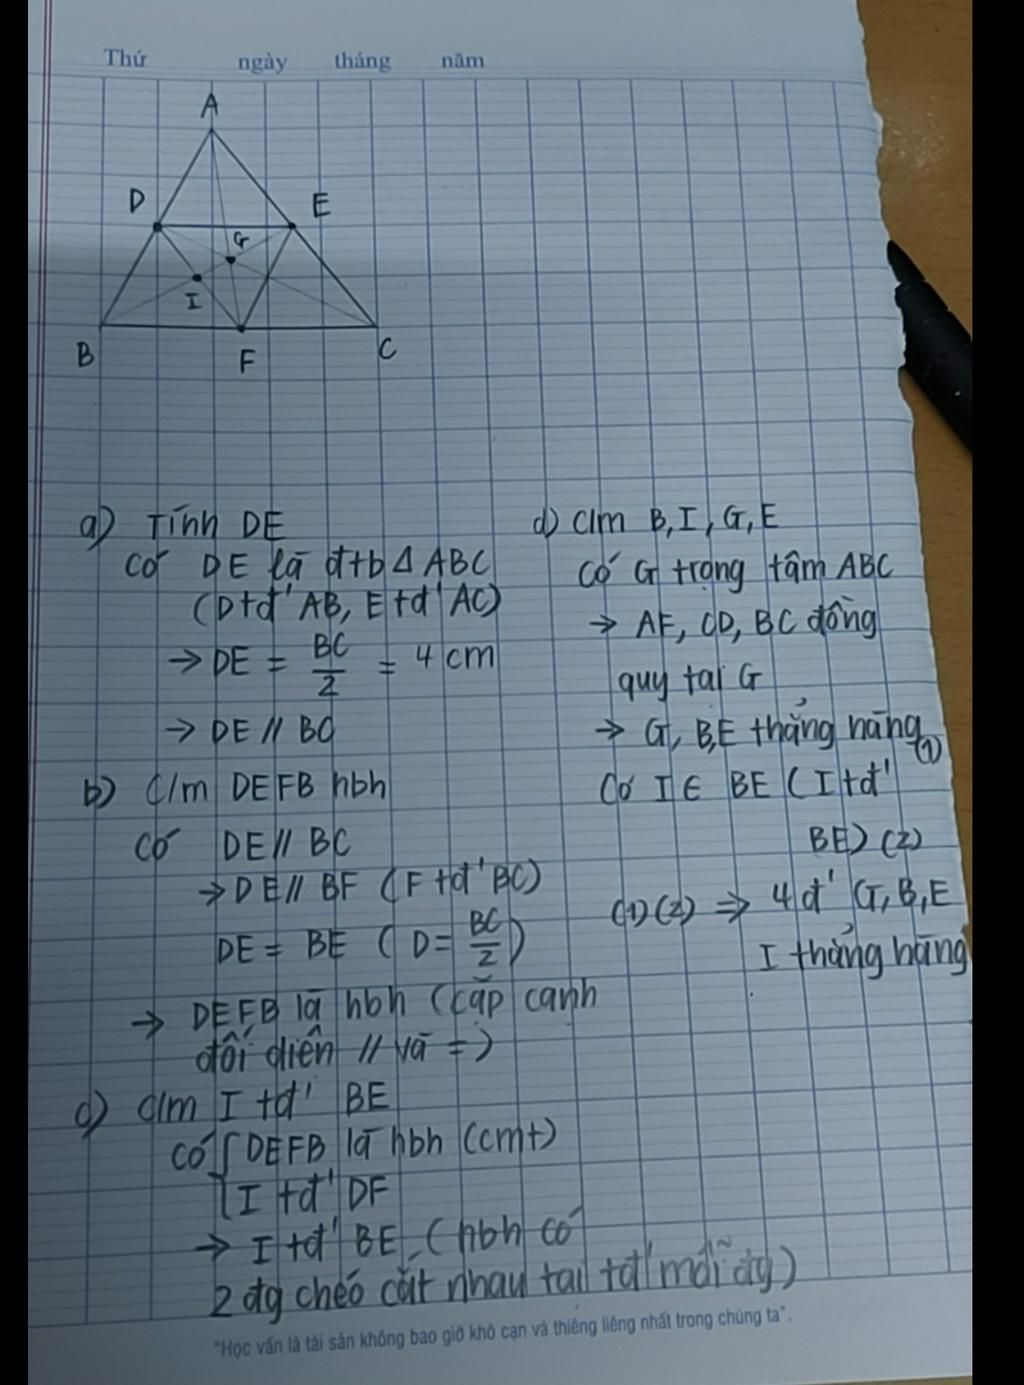 Thứ ngày tháng năm
A
D
E
G
I
B
F
C
a) Tính DE
Có DE là đtb Δ ABC
(D tđ' AB, E tđ' AC)
→ DE = BC/2 = 4 cm
→ DE // BC
b) C/m DEFB hbh
Có DE // BC
→ DE // BF (F tđ' BC)
DE = BE (D = BC/2)
→ DEFB là hbh (cặp cạnh
đối diện // và =)
c) c/m I tđ' BE
Có { DEFB là hbh (cmt)
I tđ' DF
→ I tđ' BE (hbh có
2 đg chéo cắt nhau tại tđ' mỗi đg)
d) c/m B, I, G, E
Có G trọng tâm ABC
→ AF, CD, BC đồng
quy tại G
→ G, B, E thẳng hàng (1)
Có I ∈ BE (I tđ'
BE) (2)
(1) (2) ⇒ 4 đ' G, B, E
I thẳng hàng
"Học vấn là tài sản không bao giờ khô cạn và thiêng liêng nhất trong chúng ta".